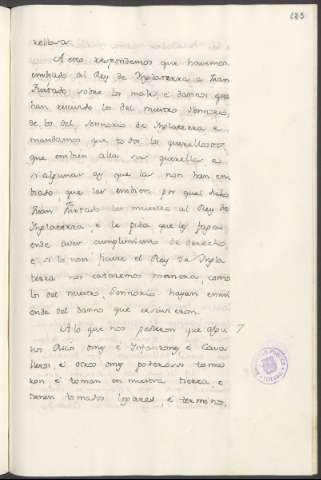 183
rellosa
A esto respondemos que havemos
embiado al Rey de Inglaterra a Juan
Furtado sobre los males e dannos que
han recivido los del nuestro Sennorio,
de los del Sennorio de Inglaterra e
mandamos que todos los querellosos
que embien alla sus querellas e
si algunos ay que las non han em
biado que las embien por quel dicho
Juan Furtado las muestre al Rey de
Inglaterra, e le pida que les faga
ende aver cumplimiento de derecho,
e si lo non ficiere el Rey de Ingla
terra nos cataremos manera, como
los del nuestro Sennorio hayan emien
da del danno que recivieron.
A lo que nos pidieron que 7
Ricos omes e Infanzones e Cava
lleros e otros omes poderosos toma
ron e toman en nuestra tierra, e
tienen tomados logares, e terminos,